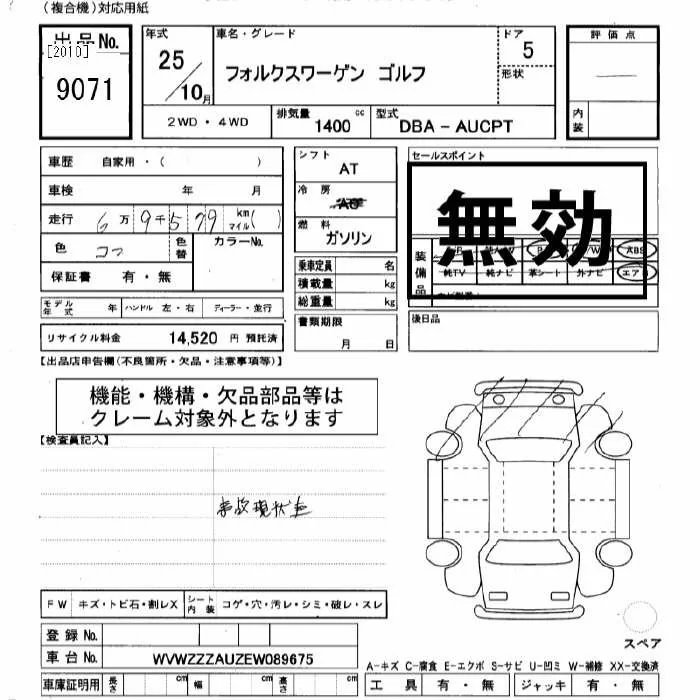 (複合機)対応用紙
出品No.
[2010]
9071
年式
25/10月
車名・グレード
フォルクスワーゲン ゴルフ
ドア
5
形状
評価点
内装
2WD・4WD
排気量 1400 cc
型式 DBA-AUCPT
車歴 自家用・( )
車検 年 月
走行 6万9千579 km マイル( )
色
色替
カラーNo.
保証書 有・無
シフト
AT
冷房
燃料
ガソリン
乗車定員 名
積載量 kg
総重量 kg
セールスポイント
無効
装備品
ABS
純TV 純ナビ 革シート 外ナビ エア
モデル年式 年 ハンドル 左・右 ディーラー・並行
リサイクル料金 14,520 円 預託済
書類期限
月 日
後日品
【出品店申告欄(不良箇所・欠品・注意事項等)】
機能・機構・欠品部品等は
クレーム対象外となります
【検査員記入】
事故現状車
FW キズ・トビ石・割レX シート内装 コゲ・穴・汚レ・シミ・破レ・スレ
登録No.
車台No. WVWZZZAUZEW089675
車庫証明用 長さ cm 幅 cm 高さ cm
スペア
A-キズ C-腐食 E-エクボ S-サビ U-凹ミ W-補修 XX-交換済
工具 有・無 ジャッキ 有・無